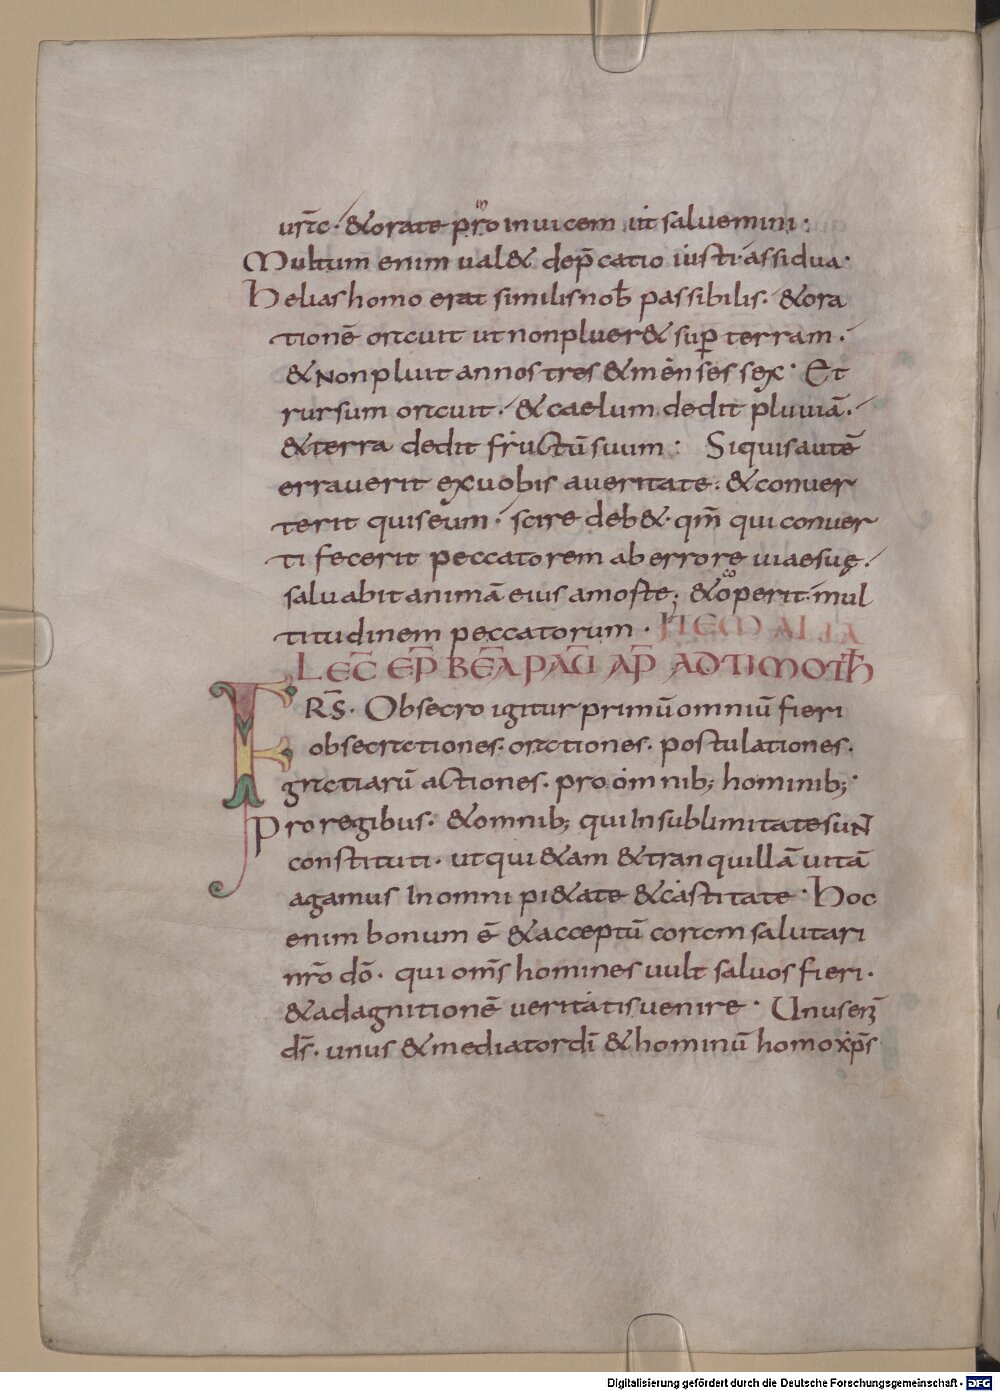 urā· &orate pro inuicem ut saluemini:
Multum enim ual& dep̄catio iusti assidua·
helias homo erat similis nob̄ passibilis· &ora
tionē orauit ut non pluer& sup̄ terram·
& Non pluit annos tres & menses sex· Et
rursum orauit· & caelum dedit pluuiā·
& terra dedit fructū suum: Siquis autē
errauerit ex uobis a ueritate· & conuer
terit quis eum· scire deb& qm̄ qui conuer
ti fecerit peccatorem ab errore uiae suę·
saluabit animā eius a morte; & cooperit mul
titudinem peccatorum· ITEM ALIA
LEC̄ EP̄ BEĀ PAULI AP̄ AD TIMOTH̄
FRS̄· Obsecro igitur primū omniū fieri
obsecrationes· orationes· postulationes·
gratiarū actiones· pro omnib; hominib;·
Pro regibus· & omnib; qui In sublimitate suN̄
constituti· ut qui&am & tranquillā uitā
agamus In omni pi&ate & castitate· hoc
enim bonum ē & acceptū coram salutari
nr̄o dō· qui oms̄ homines uult saluos fieri·
& ad agnitionē ueritatis uenire· Unus eni̅
ds̄· unus & mediator dī & hominū homo xp̄s
Digitalisierung gefördert durch die Deutsche Forschungsgemeinschaft - DFG